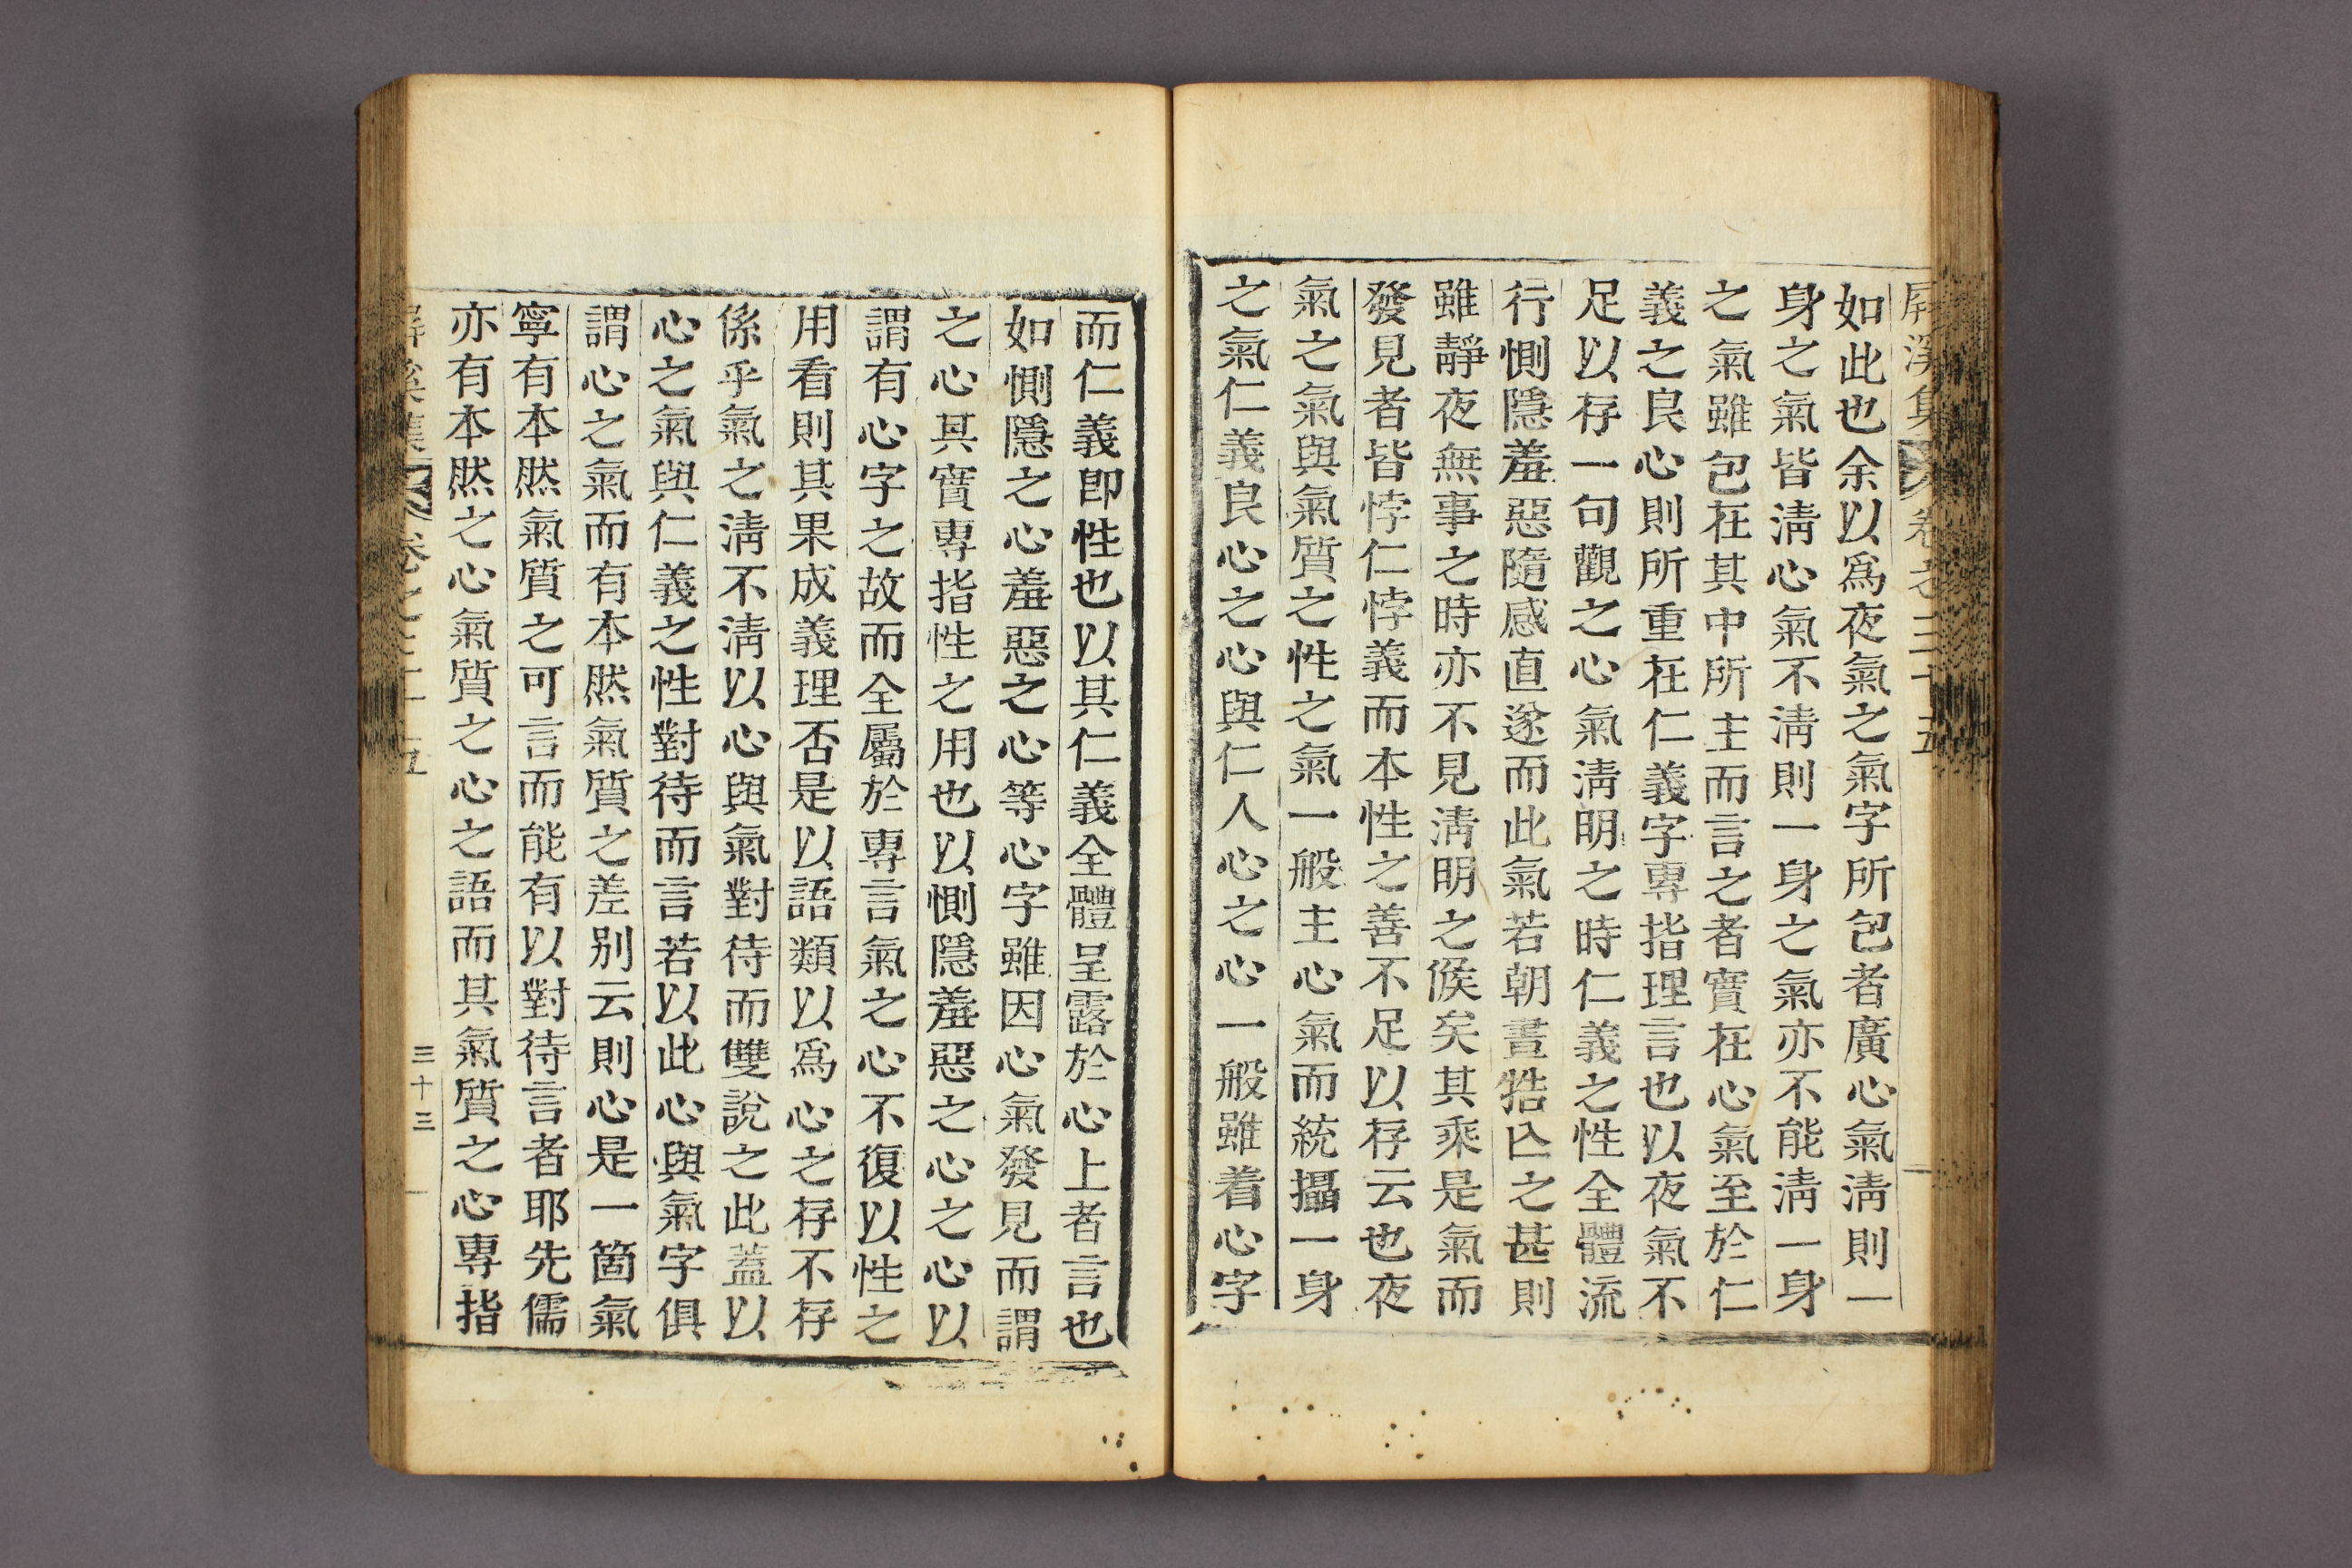 屛溪集 卷之三十五
如此也余以爲夜氣之氣字所包者廣心氣淸則一
身之氣皆淸心氣不淸則一身之氣亦不能淸一身
之氣雖包在其中所主而言之者實在心氣至於仁
義之良心則所重在仁義字專指理言也以夜氣不
足以存一句觀之心氣淸明之時仁義之性全體流
行惻隱羞惡隨感直遂而此氣若朝晝牿亾之甚則
雖靜夜無事之時亦不見淸明之候矣其乘是氣而
發見者皆悖仁悖義而本性之善不足以存云也夜
氣之氣與氣質之性之氣一般主心氣而統攝一身
之氣仁義良心之心與仁人心之心一般雖着心字
而仁義卽性也以其仁義全體呈露於心上者言也
如惻隱之心羞惡之心等心字雖因心氣發見而謂
之心其實專指性之用也以惻隱羞惡之心之心以
謂有心字之故而全屬於專言氣之心不復以性之
用看則其果成義理否是以語類以爲心之存不存
係乎氣之淸不淸以心與氣對待而雙說之此蓋以
心之氣與仁義之性對待而言若以此心與氣字俱
謂心之氣而有本然氣質之差別云則心是一箇氣
寧有本然氣質之可言而能有以對待言者耶先儒
亦有本然之心氣質之心之語而其氣質之心專指
屛溪集 卷之三十五 三十三